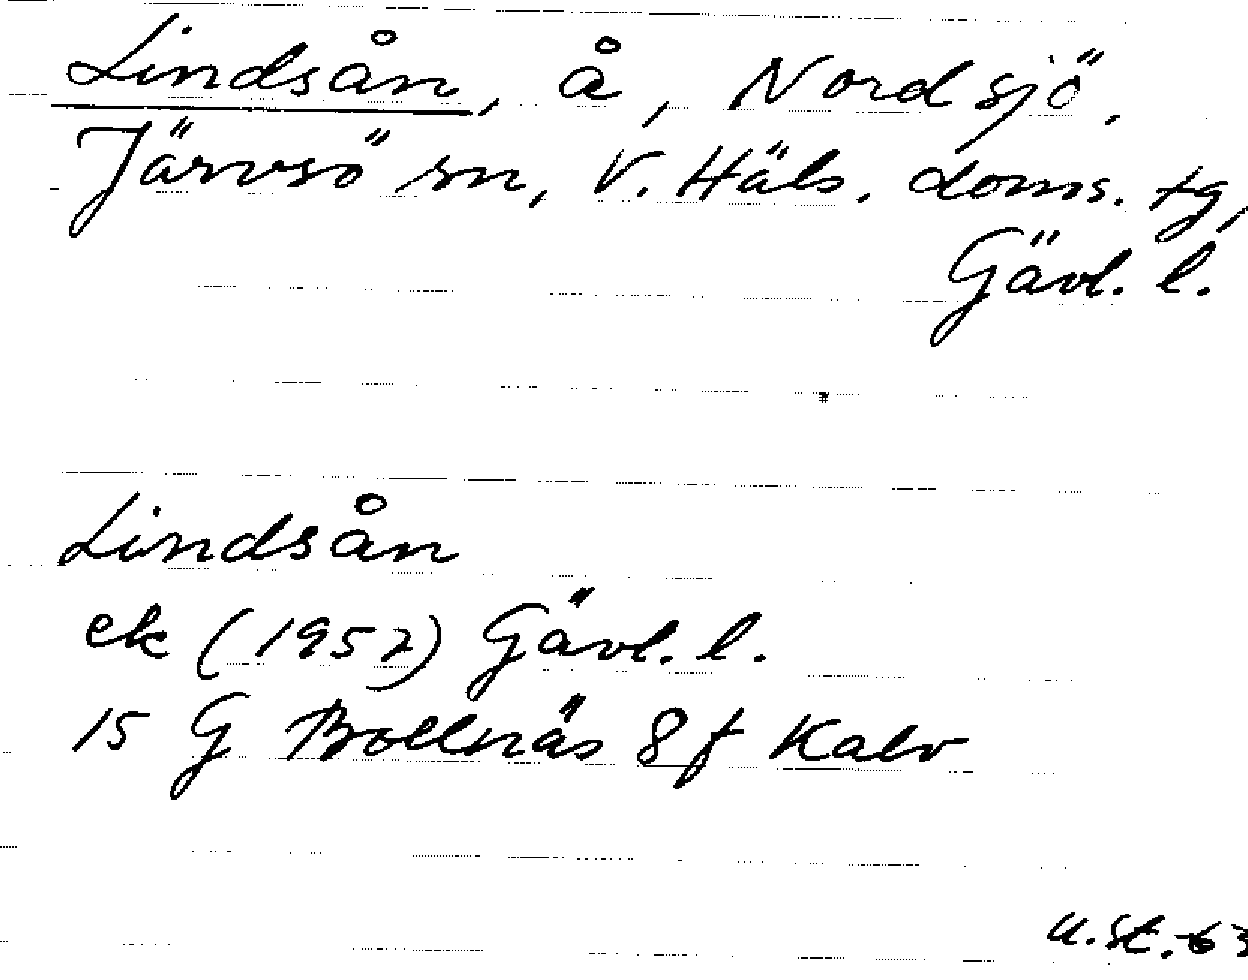 Lindsån, å, Nordsjö,
Järvsö sn, V. Häls. doms. tg,
Gävl. l.
Lindsån
ek (1957) Gävl. l.
15 G Bollnäs 8 f Kalv
U.St.-63